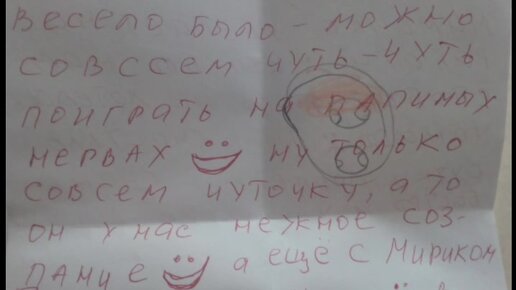 весело было - можно
совссем чуть-чуть
поиграть на папиных
нервах ну только
совсем чуточку, а то
он у нас нежное соз-
дание а ещё с Мириком